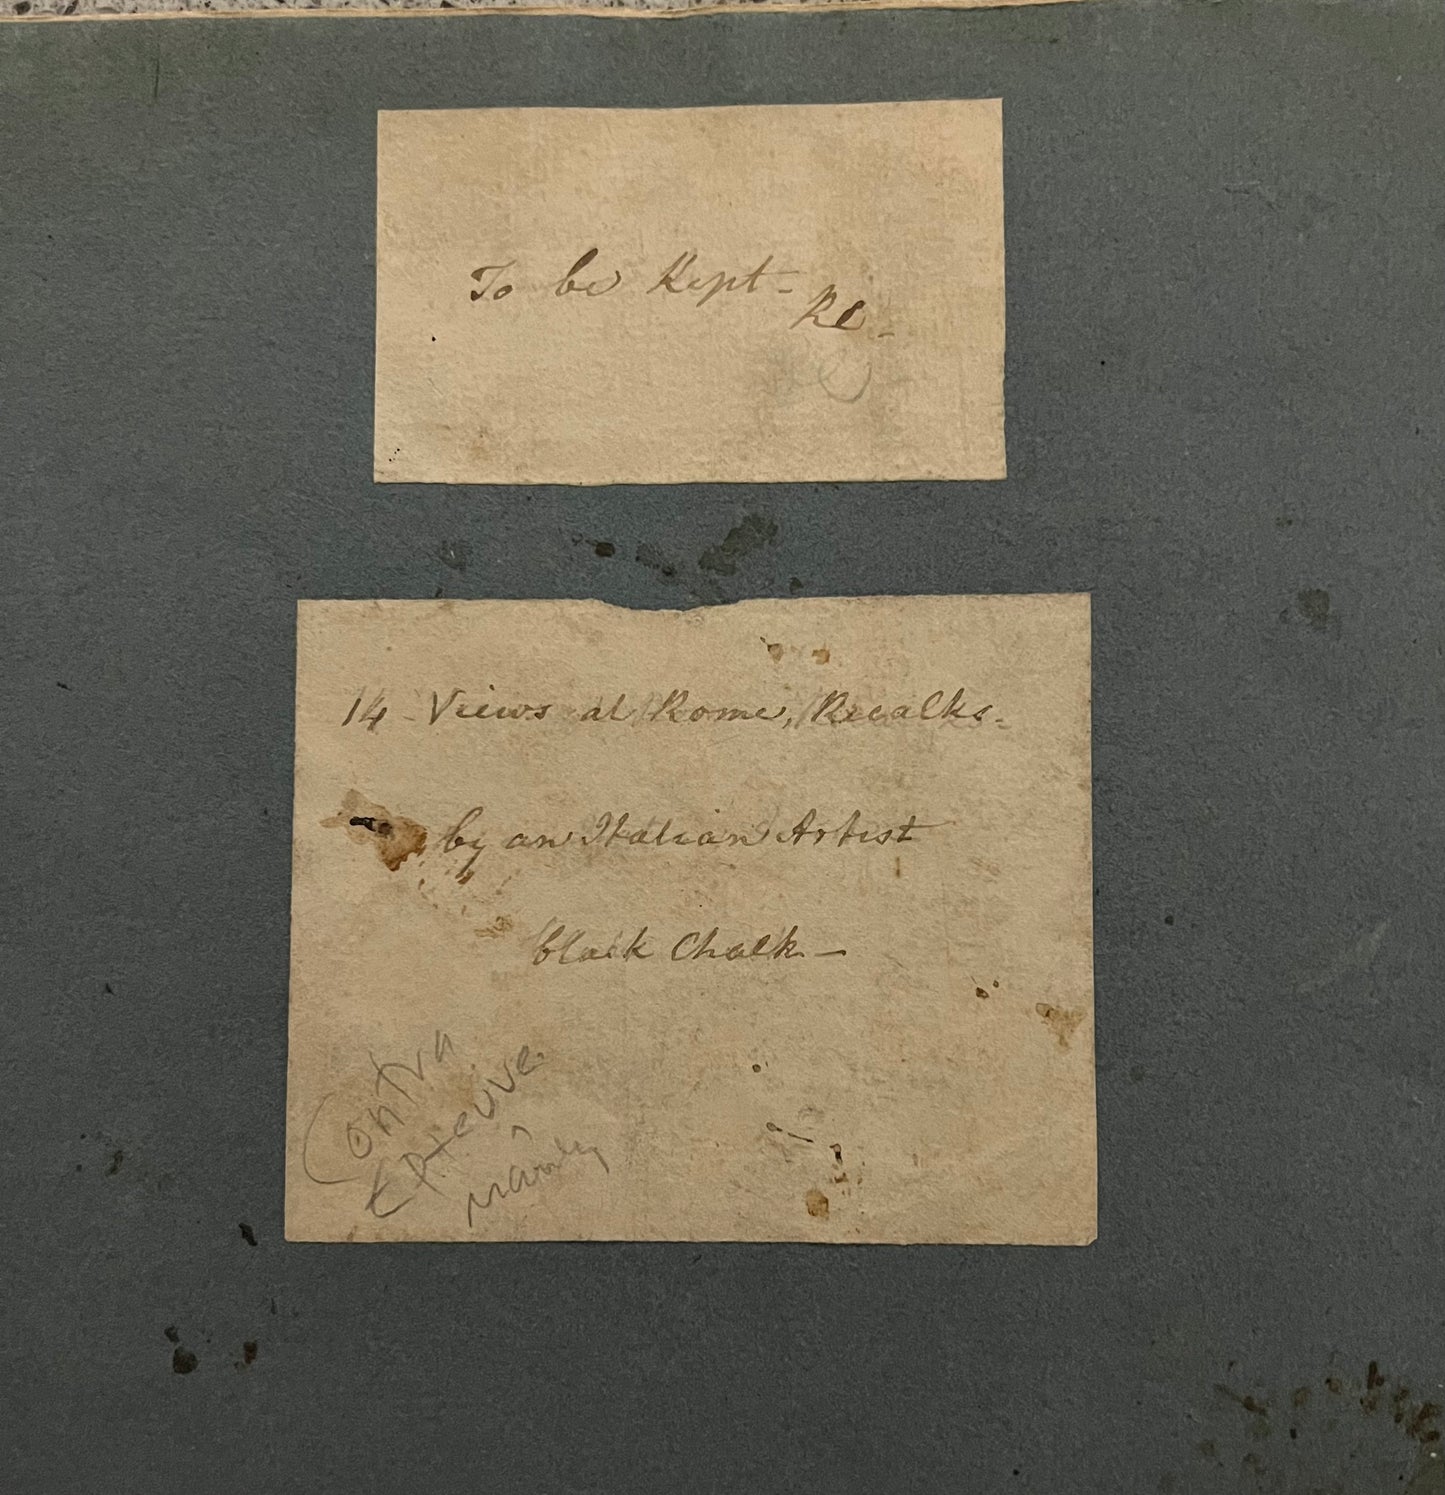 To be Kept - Re -
14 - Views at Rome, Recalks -
by an Italian Artist
black Chalk -
Contra
Epreuve
mainly